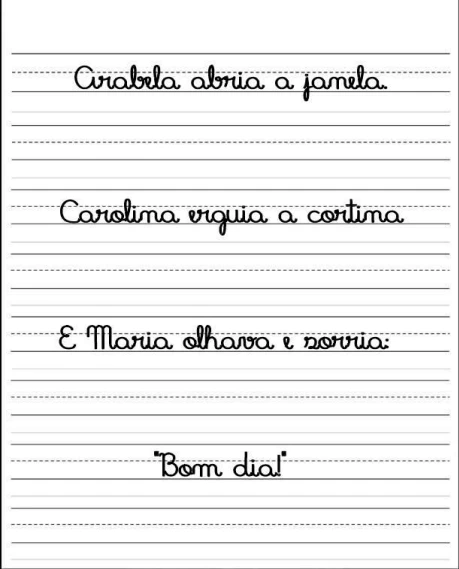 Arabela abria a janela.
Carolina erguia a cortina
E Maria olhava e sorria:
"Bom dia!"